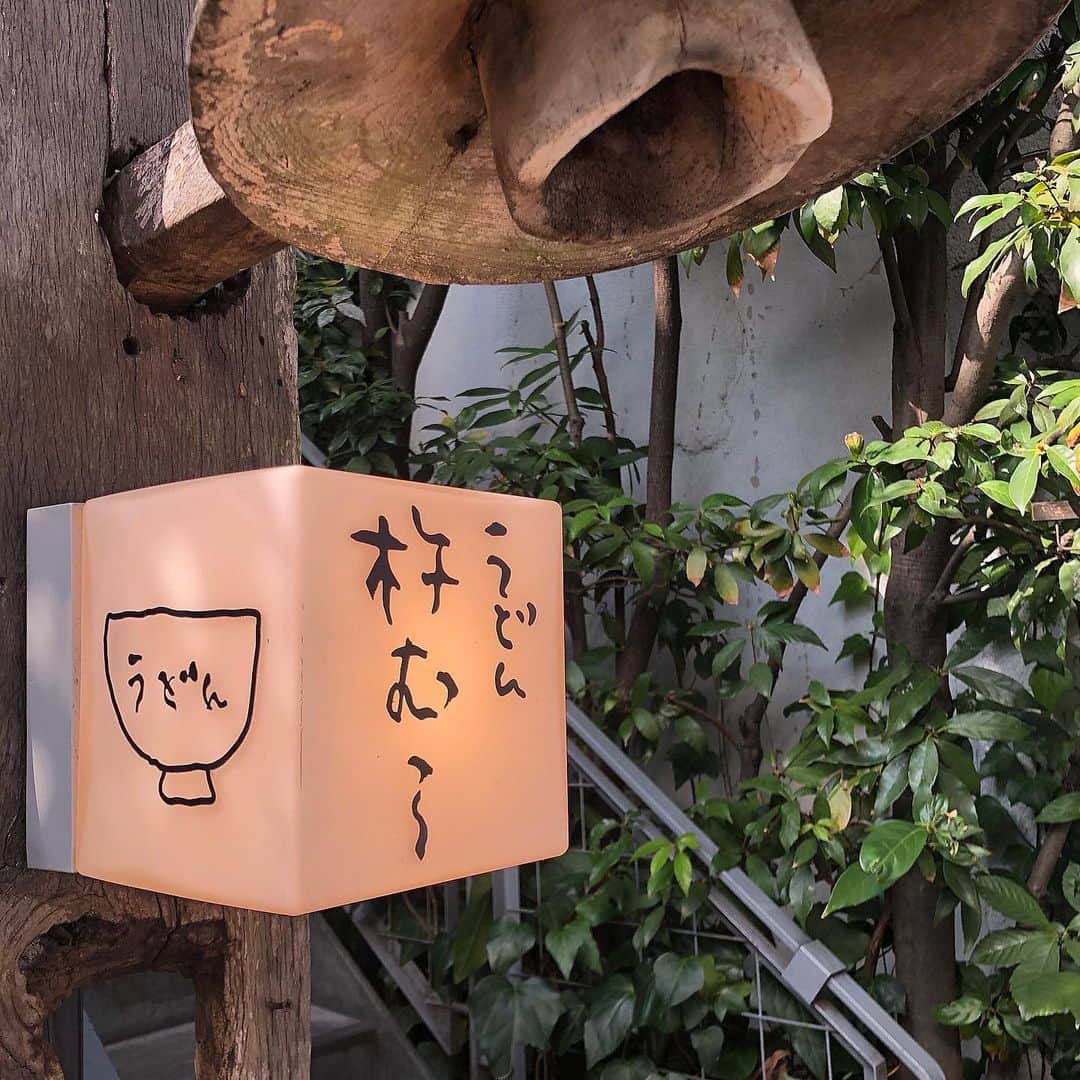 うどん
杵むら
うどん